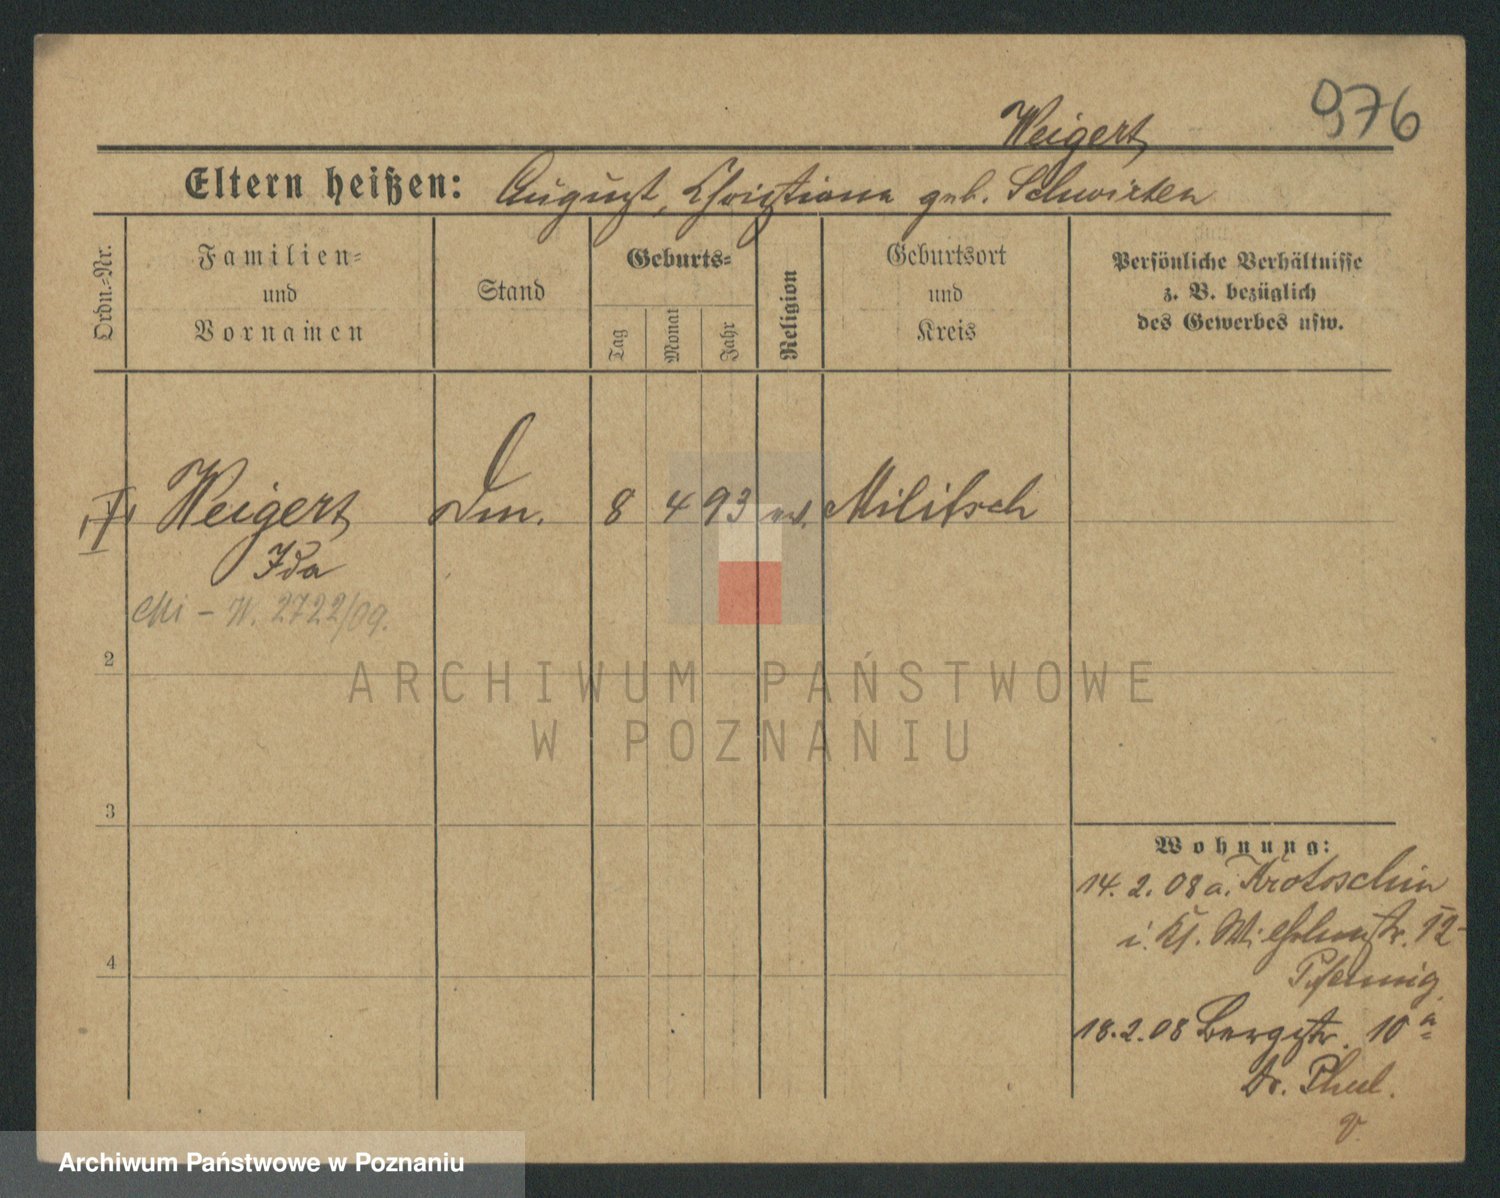 976
Weigert
Eltern heißen: August, Christiana geb. Schwirten
Ordn.-Nr.
Familien-
und
Vornamen
Stand
Geburts-
Tag
Monat
Jahr
Religion
Geburtsort
und
Kreis
Persönliche Verhältnisse
z. B. bezüglich
des Gewerbes usw.
Weigert Dm. 8 4 93 ev. Militsch
Ida
W. 2722/09.
2
3
4
Wohnung:
14. 2. 08 a. Krotoschin
i. Kl. Wilhelmstr. 12
Pfennig
18. 2. 08 Bergstr. 10 a
Dr.
ARCHIWUM PAŃSTWOWE
W POZNANIU
Archiwum Państwowe w Poznaniu